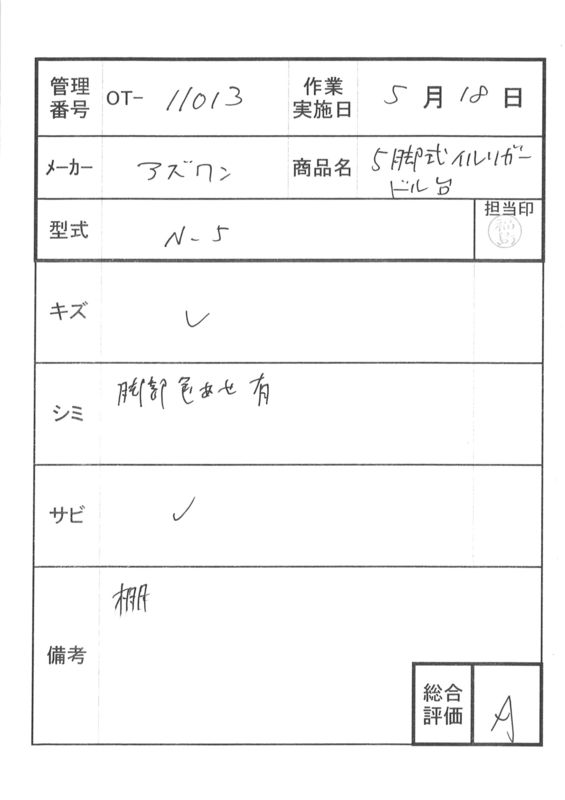 管理番号 OT- 11013 作業実施日 5月18日
メーカー アズワン 商品名 5脚式イルリガー
ドル台
型式 N-5 担当印
福島
キズ ✓
シミ 脚部色あせ有
サビ ✓
備考 棚
総合評価 A